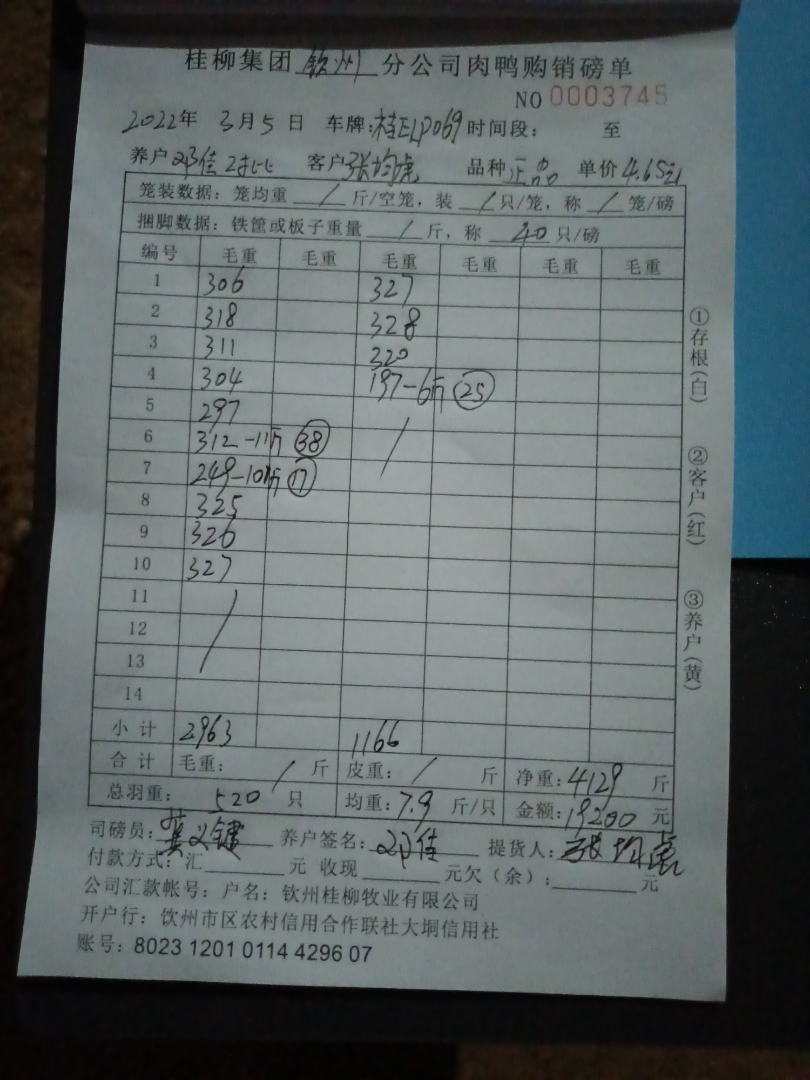 桂柳集团 钦州 分公司肉鸭购销磅单
NO 0003745
2022年 3月5日 车牌:桂ELP069 时间段: 至
养户 邓佳 客户 张均虎 品种 正品 单价 4.65元
笼装数据:笼均重 / 斤/空笼,装 / 只/笼,称 / 笼/磅
捆脚数据:铁筐或板子重量 / 斤,称 40 只/磅
编号 毛重 毛重 毛重 毛重 毛重 毛重
1 306 327
2 318 328
3 311 220
4 304 197-6斤 25
5 297 /
6 312-11斤 38
7 249-10斤 17
8 325
9 326
10 327
11 /
12
13
14
小计 2963 1166
合计 毛重: / 斤 皮重: / 斤 净重:4129 斤
总羽重: 520 只 均重:7.9 斤/只 金额:19200 元
司磅员: 龚义键 养户签名: 邓佳 提货人: 张均虎
付款方式:汇 元 收现 元欠(余): 元
公司汇款帐号:户名:钦州桂柳牧业有限公司
开户行:钦州市区农村信用合作联社大垌信用社
账号:8023 1201 0114 4296 07
①存根(白)
②客户(红)
③养户(黄)